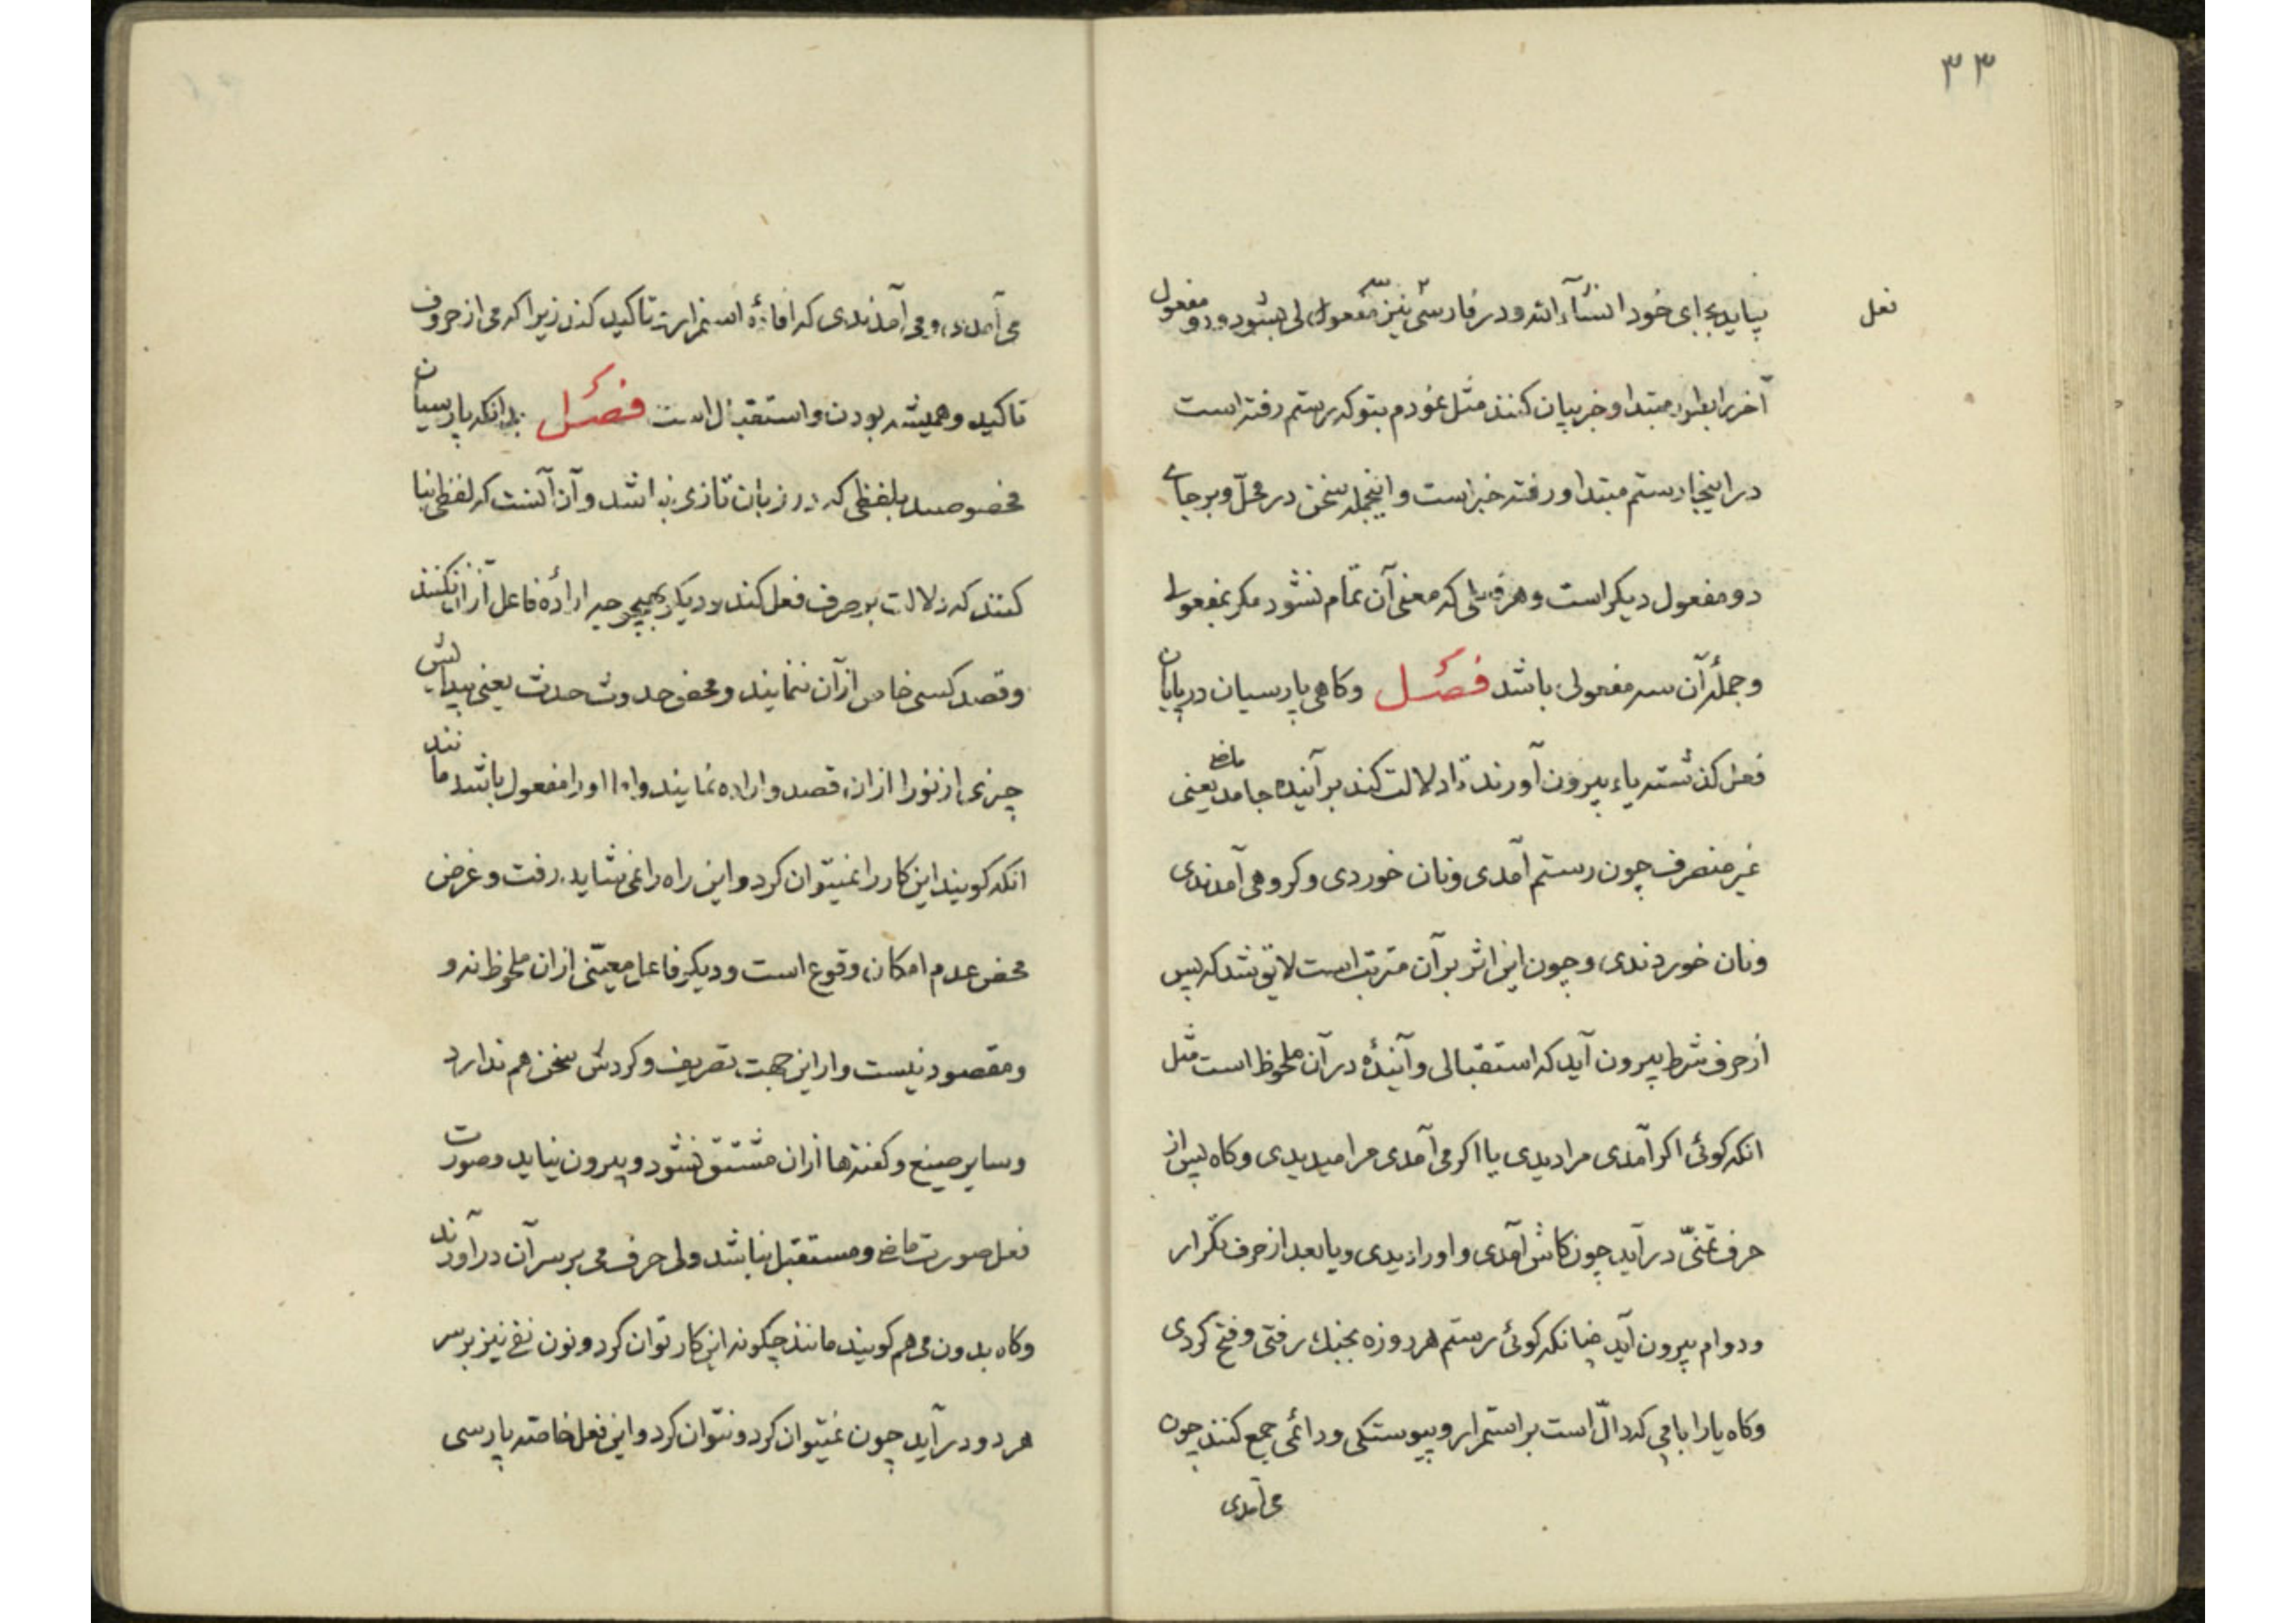 ۳۳
فعل
بیاید بجای خود انشآء الله و در فارسی نیز سه مفعولی بشود و دو مفعول
آخر را بطور مبتدا و خبر بیان کنند مثل نمودم بتو که رستم رفته است
در اینجا رستم مبتدا و رفته خبر است و اینجمله سخن در محلّ و بر جای
دو مفعول دیکر است و هر فعلی که معنی آن تمام نشود مکر بمفعولی
و جملهٔ آن سه مفعولی باشد فصل وکاهی پارسیان در پایان
فعل کذشته یاء بیرون آورند تا دلالت کند بر آینده جامد ماضی یعنی
غیر منصرف چون رستم آمدی و نان خوردی و کروهی آمدندی
و نان خوردندی و چون این اثر بر آن مترتب است لایق شد که پس
از حرف شرط بیرون آید که استقبالی و آیندهٔ در آن ملحوظ است مثل
انکه کوئی اکر آمدی مرا دیدی یا اکر می آمدی مرا میدیدی و کاه پس از
حرف تمنّی در آید چون کاش آمدی و او را دیدی و یا بعد از حرف تکرار
و دوام بیرون آید چنانکه کوئی رستم هر روزه بجنك رفتی و فتح کردی
و کاه یا را با می که دالّ است بر استمرار و پیوستکی و دائمی جمع کنند چون
می آمدی
می آمدی و می آمدندی که افادهٔ استمرار تاکید کند زیرا که می از حروف
تاکید و همیشه بودن و استقبال است فصل بدانکه پارسیان
مخصوصند بلفظی که در زبان تازی نباشد و آن آنست که لفظی بنا
کنند که دلالت بر صرف فعل کند و دیکر بهیچوجه ارادهٔ فاعل از آن نکنند
و قصد کسی خاص از آن ننمایند و محض حدوث حدث یعنی پیدایش
چیزی از نو را از آن قصد و اراده نمایند و اما او را مفعول باشد مانند
انکه کویند این کار را نمیتوان کرد و این راه را نمی شاید رفت و غرض
محض عدم امکان وقوع است و دیکر فاعل معیّنی از آن ملحوظ نه و
و مقصود نیست و از این جهت تصریف و کردش سخن هم ندارد
و سایر صیغ و کفتها از آن مشتق نشود و بیرون نیاید و صورت
فعل صورت ماضی و مستقبل نباشد ولی حرف می بر سر آن در آورند
و کاه بدون می هم کویند مانند چکونه این کار توان کرد و نون نفی نیز بر سر
هر دو در آید چون نمیتوان کرد و نتوان کرد و این فعل خاصّه پارسی